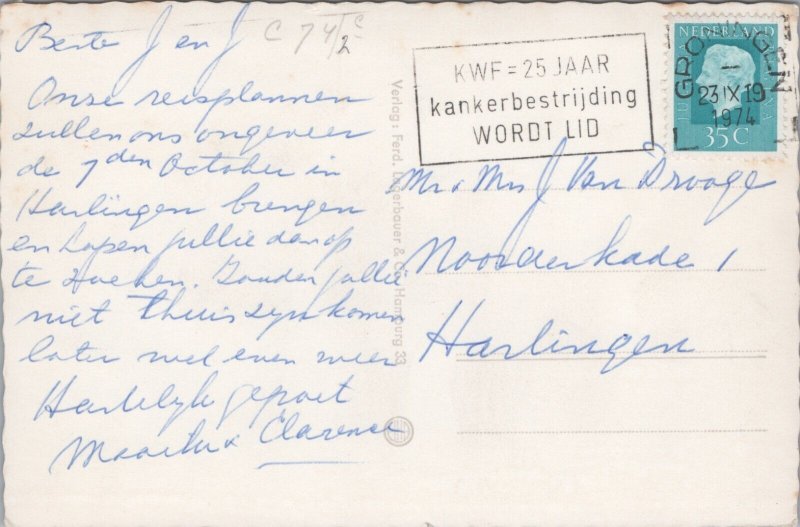 Beste J en J
C 74/2 c
Onze reisplannen
zullen ons ongeveer
de 7den October in
Harlingen brengen
en hopen jullie dan op
te zoeken. Zouden jullie
niet thuis zyn komen
later wel even weer
Hartelyk gegroet
Clarence
Verlag: Ferd. Lagerbauer & Co. Hamburg 33
KWF = 25 JAAR
kankerbestrijding
WORDT LID
NEDERLAND
GRONINGEN
23 IX 19
1974
35 C
Mr & Mrs J Van Drooge
Noorderkade 1
Harlingen